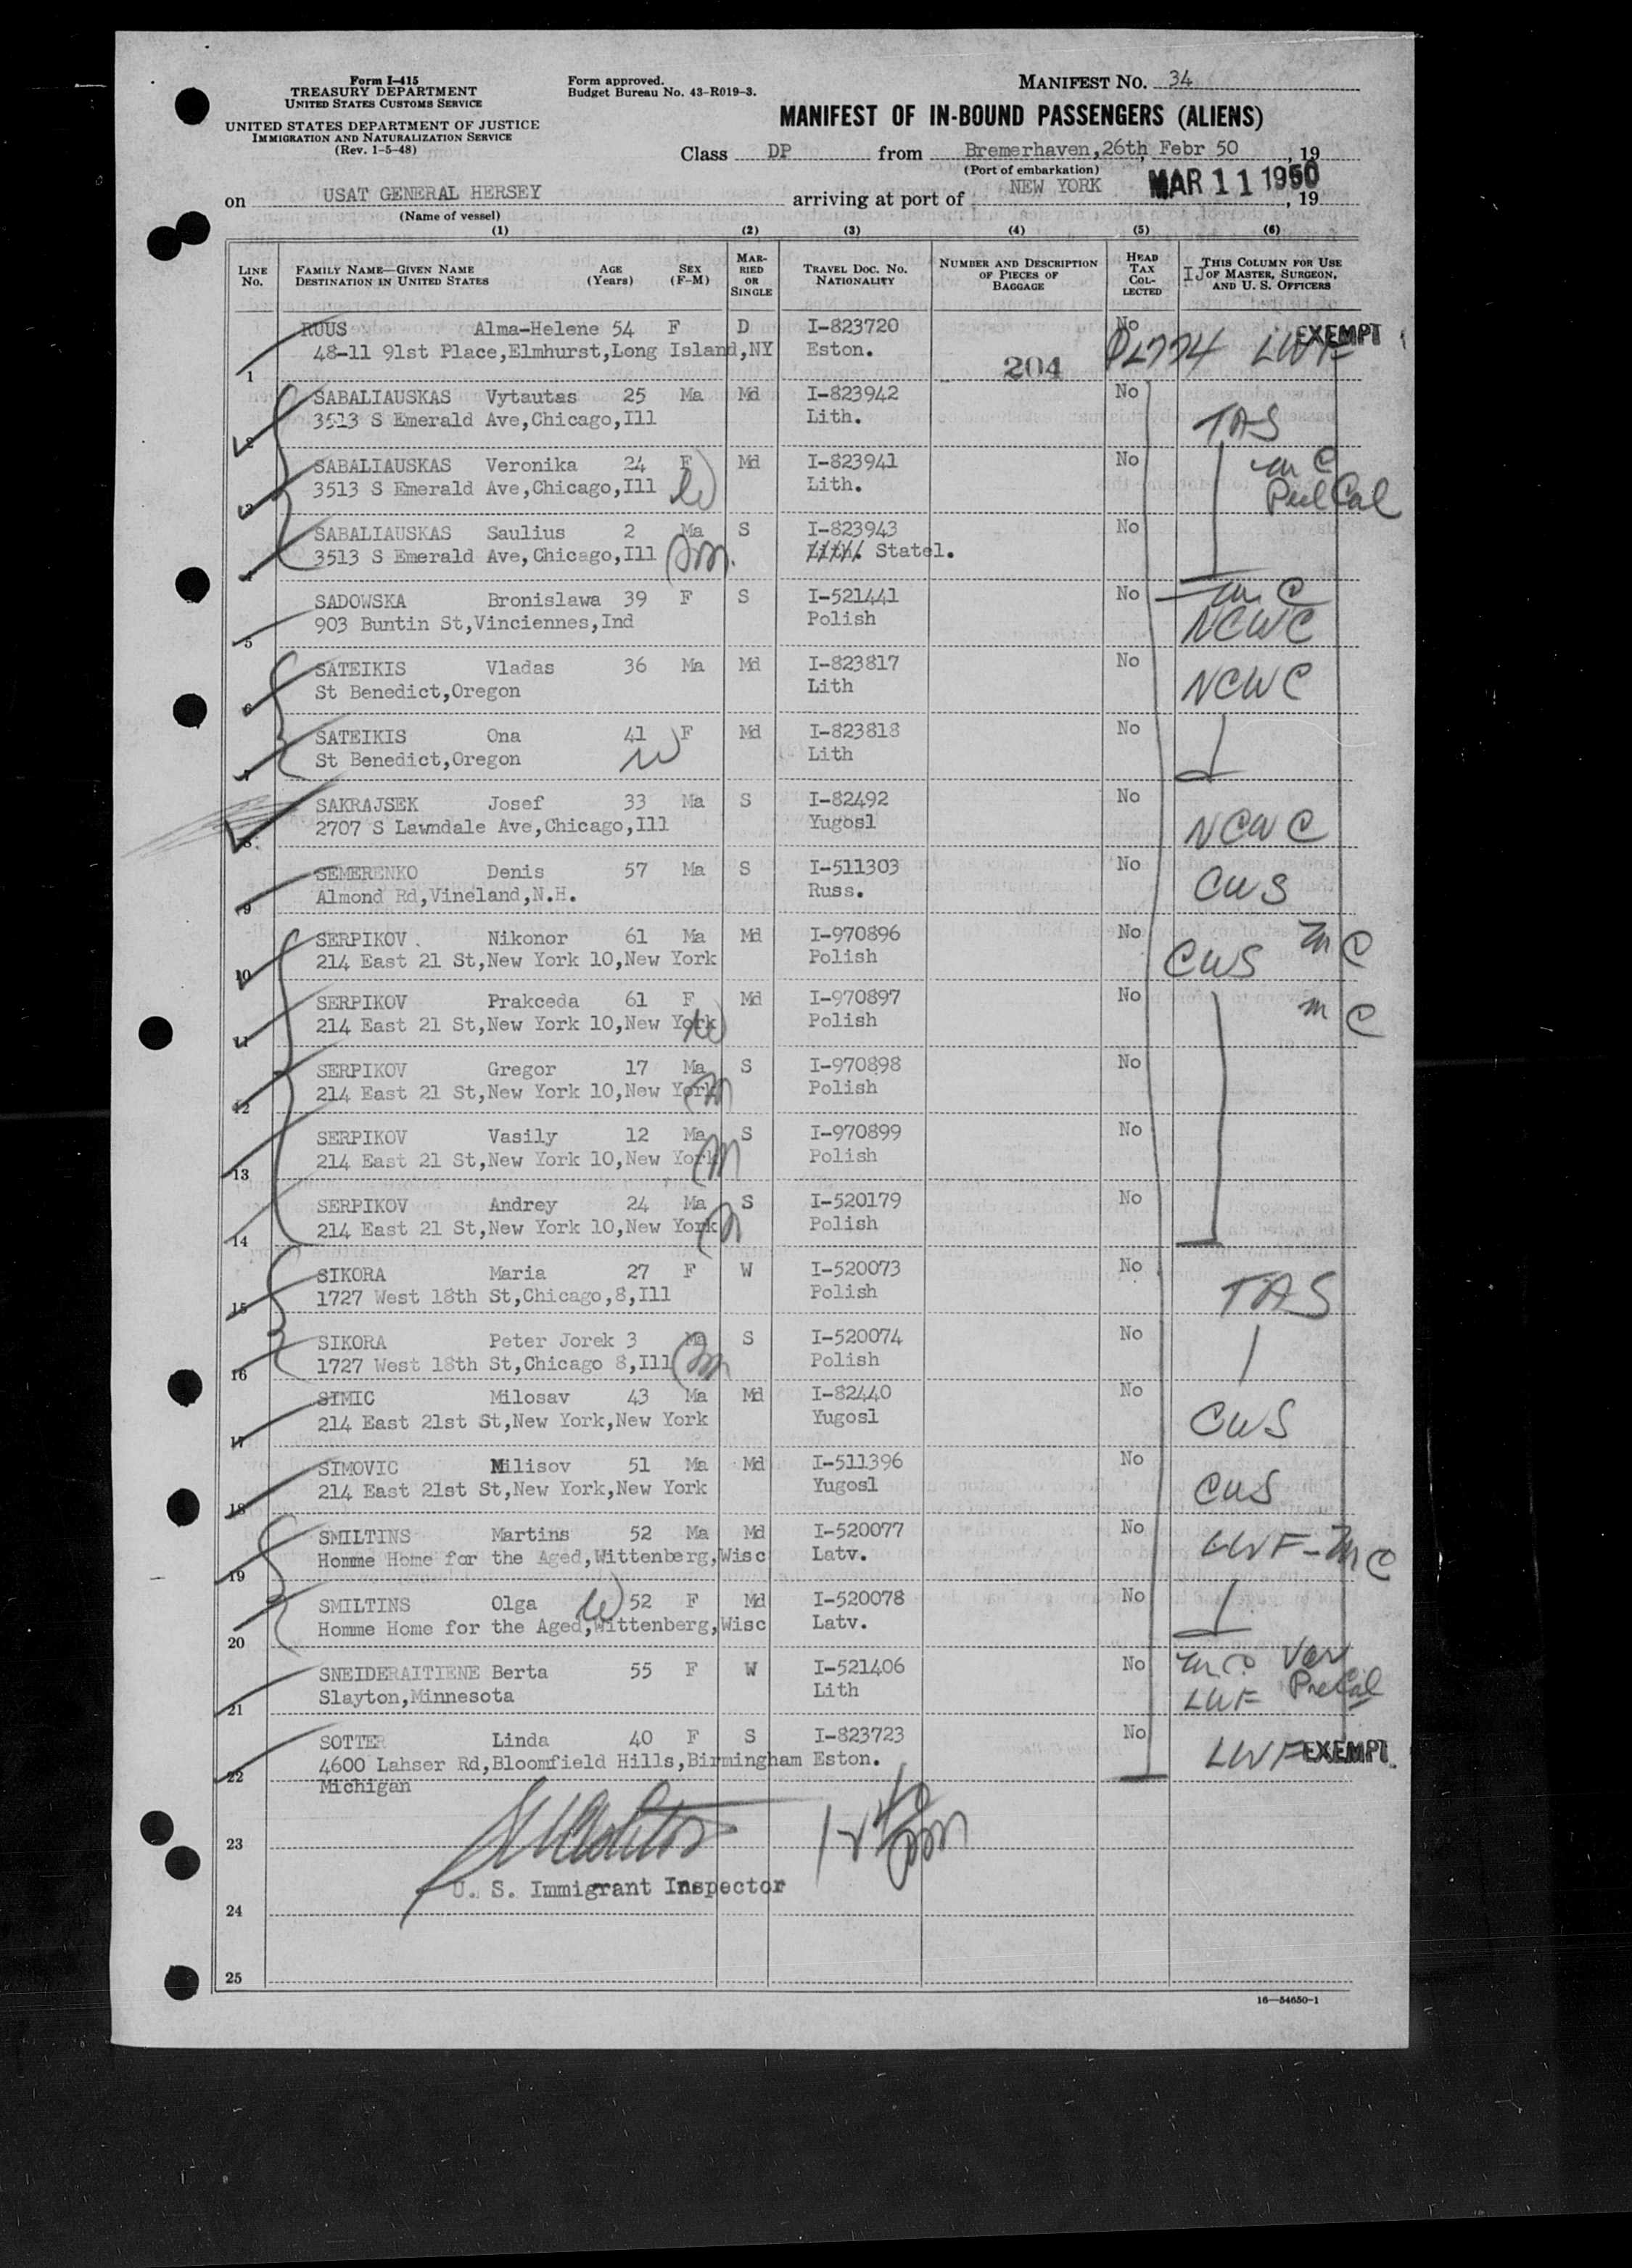 Form I-415
TREASURY DEPARTMENT
UNITED STATES CUSTOMS SERVICE
UNITED STATES DEPARTMENT OF JUSTICE
IMMIGRATION AND NATURALIZATION SERVICE
(Rev. 1-5-48)
Form approved.
Budget Bureau No. 43-R019-3.
MANIFEST NO. 34
MANIFEST OF IN-BOUND PASSENGERS (ALIENS)
Class DP from Bremerhaven, 26th, Febr 50, 19
(Port of embarkation)
on USAT GENERAL HERSEY arriving at port of NEW YORK MAR 11 1950, 19
(Name of vessel)
(1) (2) (3) (4) (5) (6)
LINE No. FAMILY NAME—GIVEN NAME DESTINATION IN UNITED STATES AGE (Years) SEX (F-M) MARRIED OR SINGLE TRAVEL DOC. NO. NATIONALITY NUMBER AND DESCRIPTION OF PIECES OF BAGGAGE HEAD TAX COLLECTED THIS COLUMN FOR USE OF MASTER, SURGEON, AND U. S. OFFICERS
1 RUUS Alma-Helene 54 F D I-823720 No EXEMPT
48-11 91st Place,Elmhurst,Long Island,NY Eston. 204 LWF
2 SABALIAUSKAS Vytautas 25 Ma Md I-823942 No
3513 S Emerald Ave,Chicago,Ill Lith. TAS
3 SABALIAUSKAS Veronika 24 F Md I-823941 No m C
3513 S Emerald Ave,Chicago,Ill W Lith.
4 SABALIAUSKAS Saulius 2 Ma S I-823943 No
3513 S Emerald Ave,Chicago,Ill Lith. Statel.
5 SADOWSKA Bronislawa 39 F S I-521441 No m C
903 Buntin St,Vinciennes,Ind Polish NCWC
6 SATEIKIS Vladas 36 Ma Md I-823817 No
St Benedict,Oregon Lith NCWC
7 SATEIKIS Ona 41 F Md I-823818 No
St Benedict,Oregon W Lith
8 SAKRAJSEK Josef 33 Ma S I-82492 No
2707 S Lawndale Ave,Chicago,Ill Yugosl NCWC
9 SEMERENKO Denis 57 Ma S I-511303 No
Almond Rd,Vineland,N.H. Russ. CWS
10 SERPIKOV Nikonor 61 Ma Md I-970896 No m C
214 East 21 St,New York 10,New York Polish CWS
11 SERPIKOV Prakceda 61 F Md I-970897 No m C
214 East 21 St,New York 10,New York W Polish
12 SERPIKOV Gregor 17 Ma S I-970898 No
214 East 21 St,New York 10,New York Polish
13 SERPIKOV Vasily 12 Ma S I-970899 No
214 East 21 St,New York 10,New York Polish
14 SERPIKOV Andrey 24 Ma S I-520179 No
214 East 21 St,New York 10,New York Polish
15 SIKORA Maria 27 F W I-520073 No
1727 West 18th St,Chicago,8,Ill Polish TAS
16 SIKORA Peter Jorek 3 Ma S I-520074 No
1727 West 18th St,Chicago 8,Ill Polish
17 SIMIC Milosav 43 Ma Md I-82440 No
214 East 21st St,New York,New York Yugosl CWS
18 SIMOVIC Milisov 51 Ma Md I-511396 No
214 East 21st St,New York,New York Yugosl CWS
19 SMILTINS Martins 52 Ma Md I-520077 No
Homme Home for the Aged,Wittenberg,Wisc Latv. LWF - m C
20 SMILTINS Olga W 52 F Md I-520078 No
Homme Home for the Aged,Wittenberg,Wisc Latv.
21 SNEIDERAITIENE Berta 55 F W I-521406 No m C
Slayton,Minnesota Lith LWF
22 SOTTER Linda 40 F S I-823723 No
4600 Lahser Rd,Bloomfield Hills,Birmingham Eston. LWF EXEMPT
Michigan
23
U. S. Immigrant Inspector
24
25
16—54650-1